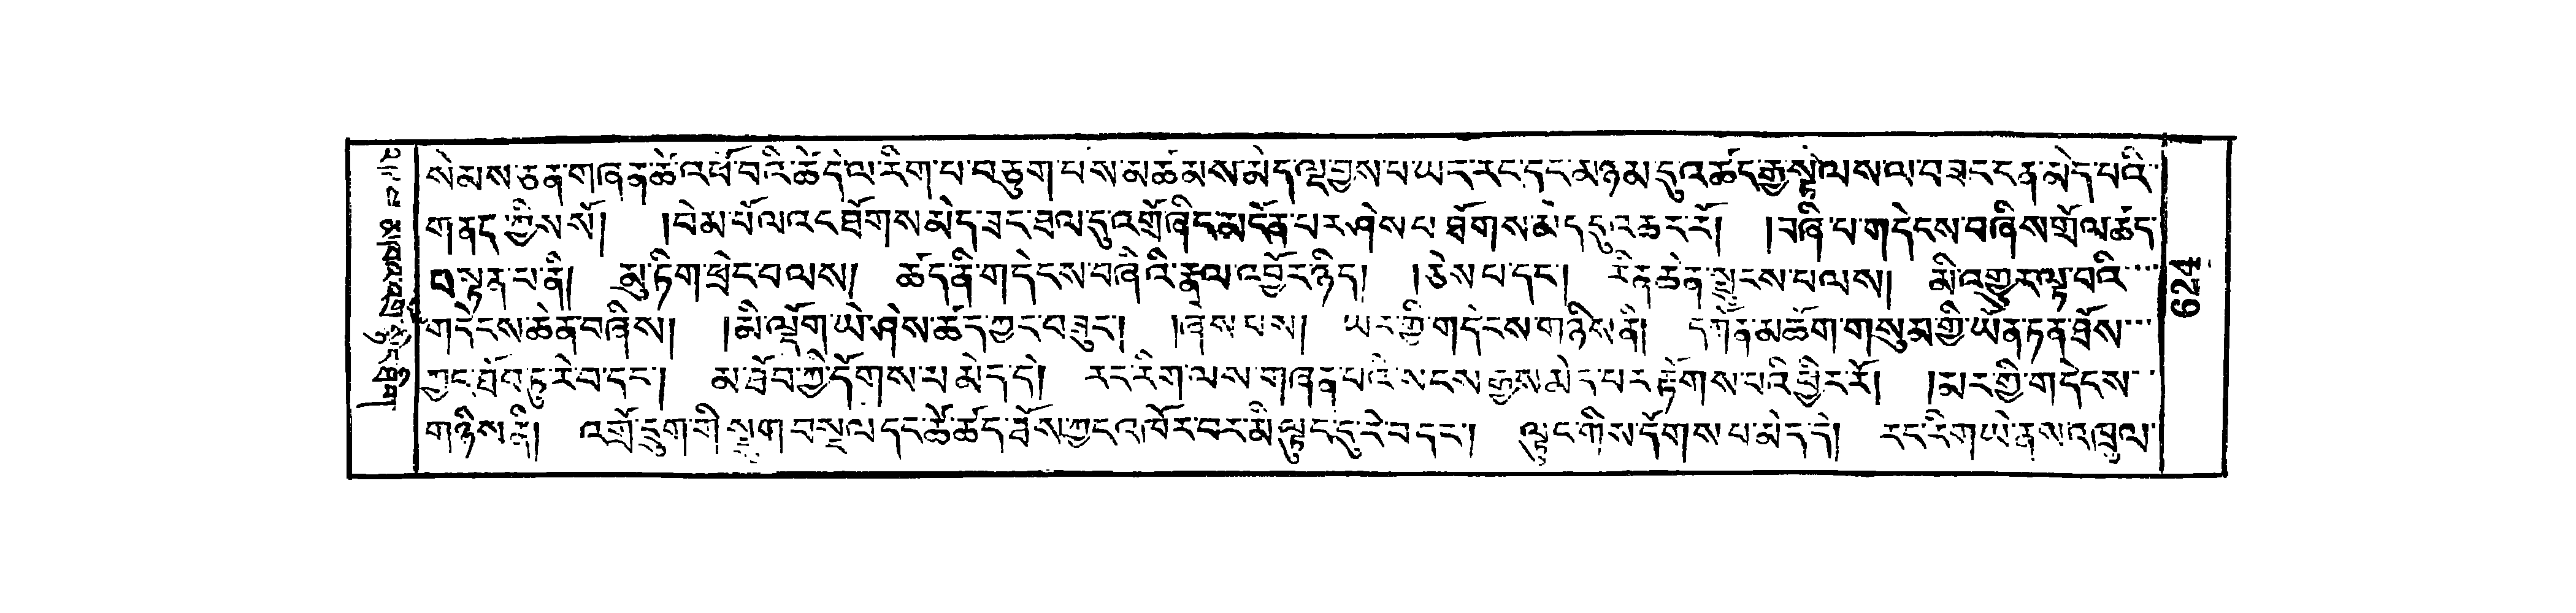 སེམས་ཅན་གཞན་ཚེ་འཕོ་བའི་ཚེ་དེ་ལ་རིག་པ་བཅུག་པས་མཚམས་མེད་ལྔ་བྱས་པ་ཡང་རང་དང་མཉམ་དུ་འཚང་རྒྱ་སྟེ་ལས་ལ་བཟང་ངན་མེད་པའི་
གནད་ཀྱིས་སོ། །བེམ་པོ་ལའང་ཐོགས་མེད་ཟང་ཐལ་དུ་འགྲོ་ཞིང་མངོན་པར་ཤེས་པ་ཐོགས་མེད་དུ་འཆར་རོ། །བཞི་པ་གདེངས་བཞིས་གྲོལ་ཚད་
བསྟན་པ་ནི། མུ་ཏིག་ཕྲེང་བ་ལས། ཚད་ནི་གདེངས་བཞིའི་རྣལ་འབྱོར་ཉིད། །ཅེས་པ་དང་། རིན་ཆེན་སྤུངས་པ་ལས། མི་འགྱུར་ལྟ་བའི་
གདེངས་ཆེན་བཞིས། །མི་ལྡོག་ཡེ་ཤེས་ཚད་ཀྱང་བཟུང་། །ཞེས་པས། ཡར་གྱི་གདེངས་གཉིས་ནི། དཀོན་མཆོག་གསུམ་གྱི་ཡོན་ཏན་ཐོས་
ཀྱང་ཐོབ་ཏུ་རེ་བ་དང་། མ་ཐོབ་ཀྱི་དོགས་པ་མེད་དེ། རང་རིག་ལས་གཞན་པའི་སངས་རྒྱས་མེད་པར་རྟོགས་པའི་ཕྱིར་རོ། །མར་གྱི་གདེངས་
གཉིས་ནི། འགྲོ་དྲུག་གི་སྡུག་བསྔལ་དང་ཚེ་ཚད་ཐོས་ཀྱང་འཁོར་བར་མི་ལྟུང་དུ་རེ་བ་དང་། ལྟུང་གིས་དོགས་པ་མེད་དེ། རང་རིག་ཡེ་ནས་འཁྲུལ་